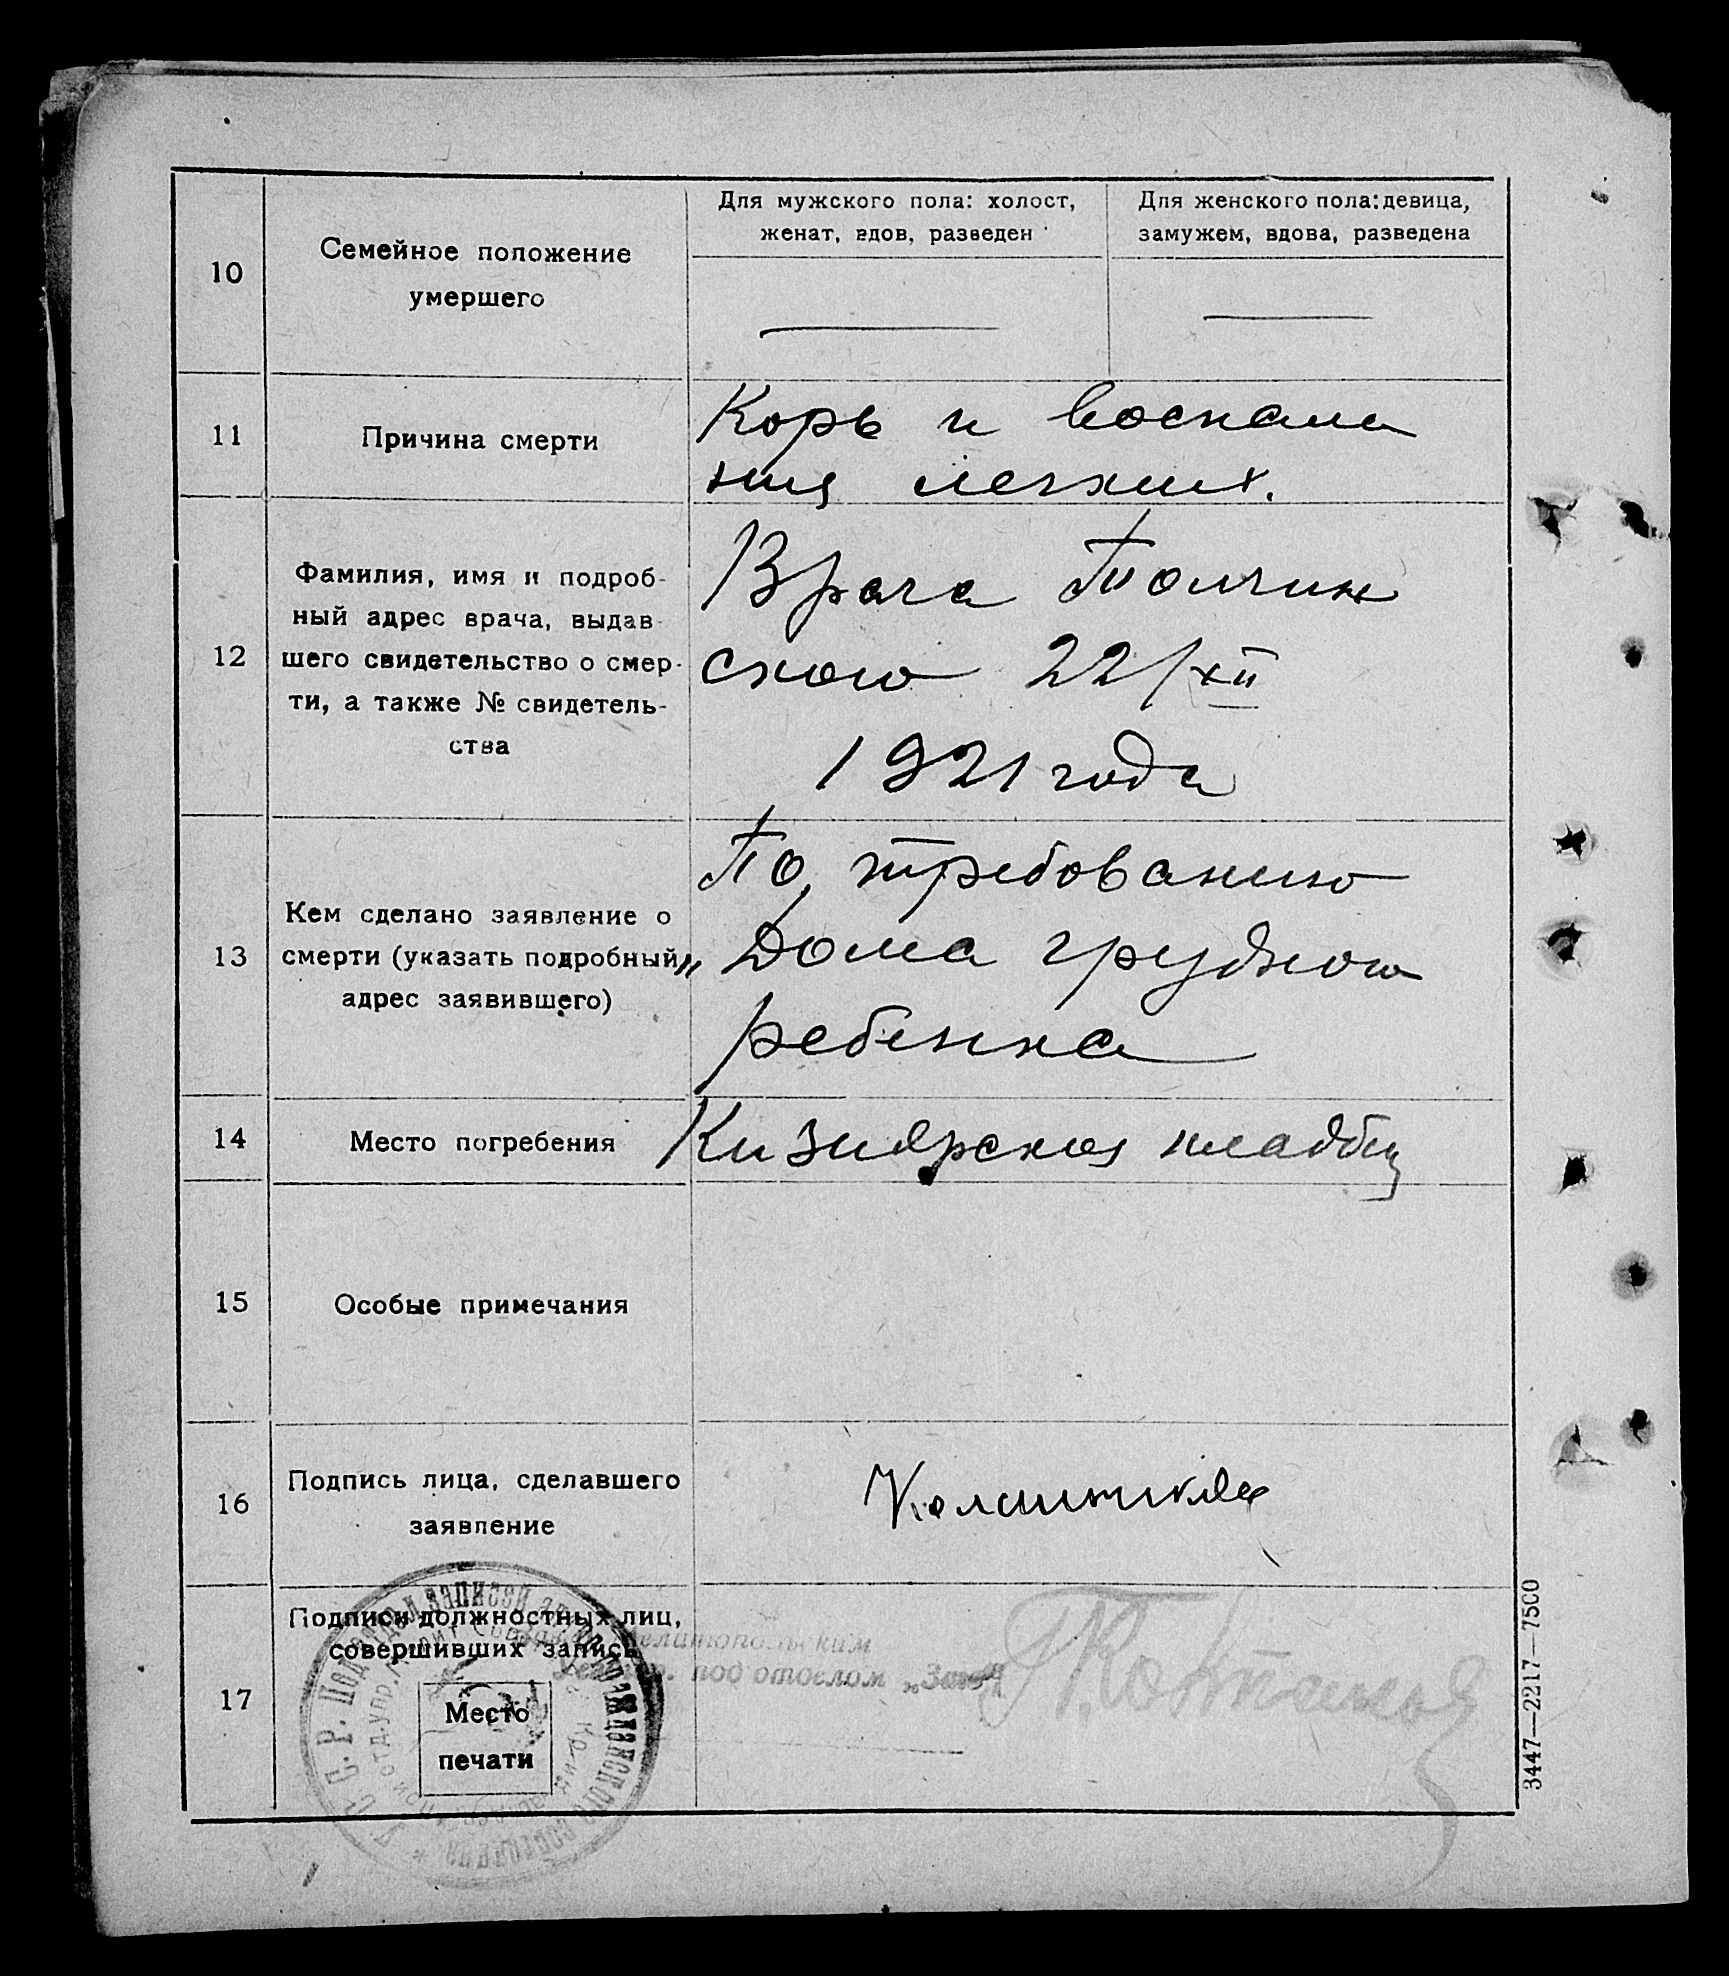 10
Семейное положение
умершего
Для мужского пола: холост,
женат, вдов, разведен
Для женского пола: девица,
замужем, вдова, разведена
11
Причина смерти
Корь и воспале
ния легких.
12
Фамилия, имя и подроб-
ный адрес врача, выдав-
шего свидетельство о смер-
ти, а также № свидетель-
ства
Врача Толчин
ского 22/XII
1921 года
13
Кем сделано заявление о
смерти (указать подробный
адрес заявившего)
По требованию
„Дома грудного
ребенка
14
Место погребения
Кизиярское кладбищ
15
Особые примечания
16
Подпись лица, сделавшего
заявление
17
Подписи должностных лиц,
совершивших запись
Место
печати
Мелитопольским
под отделом „Загс"
3447—2217—7500